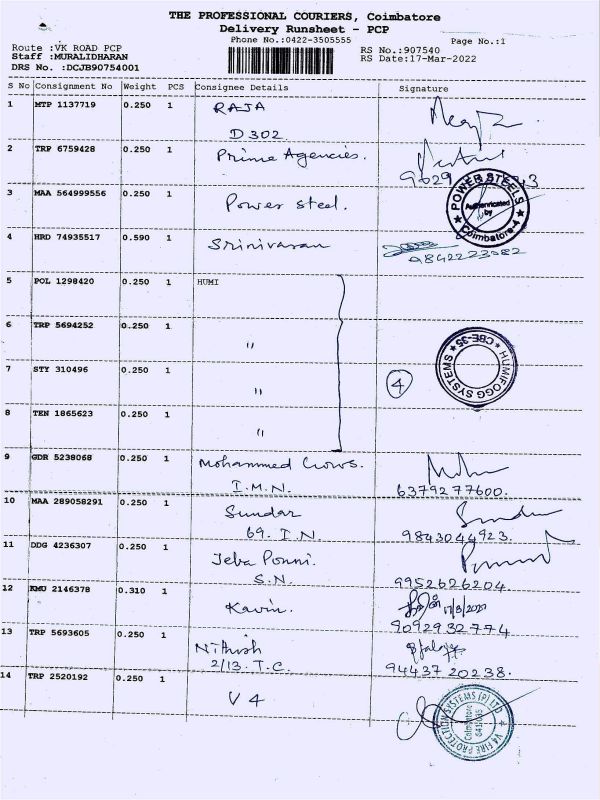 THE PROFESSIONAL COURIERS, Coimbatore
Delivery Runsheet - PCP
Phone No.:0422-3505555
Page No.:1
Route :VK ROAD PCP
Staff :MURALIDHARAN
DRS No. :DCJB90754001
RS No.:907540
RS Date:17-Mar-2022
S No Consignment No Weight PCS Consignee Details Signature
1 MTP 1137719 0.250 1 RAJA
D 302
2 TRP 6759428 0.250 1 Prime Agencies.
3 MAA 564999556 0.250 1 Power steel.
POWER STEELS
Authenticated
by
Coimbatore-4
4 HRD 74935517 0.590 1 Srinivasan
9842223382
5 POL 1298420 0.250 1 HUMI
6 TRP 5694252 0.250 1 "
HUMIFOGG SYSTEMS
CBE-35
7 STY 310496 0.250 1 "
4
8 TEN 1865623 0.250 1 "
9 GDR 5238068 0.250 1 Mohammed
I.M.N. 6379277600.
10 MAA 289058291 0.250 1 Sundar
69. I.N. 9843044923.
11 DDG 4236307 0.250 1 Jeba Ponni.
S.N. 9952626204
12 KMU 2146378 0.310 1 Kavin.
9092932774
13 TRP 5693605 0.250 1 Nithish
2/13. T.C. 9443720238.
14 TRP 2520192 0.250 1 V 4
V4 FIRE PROTECTION SYSTEMS (P) LTD
Coimbatore